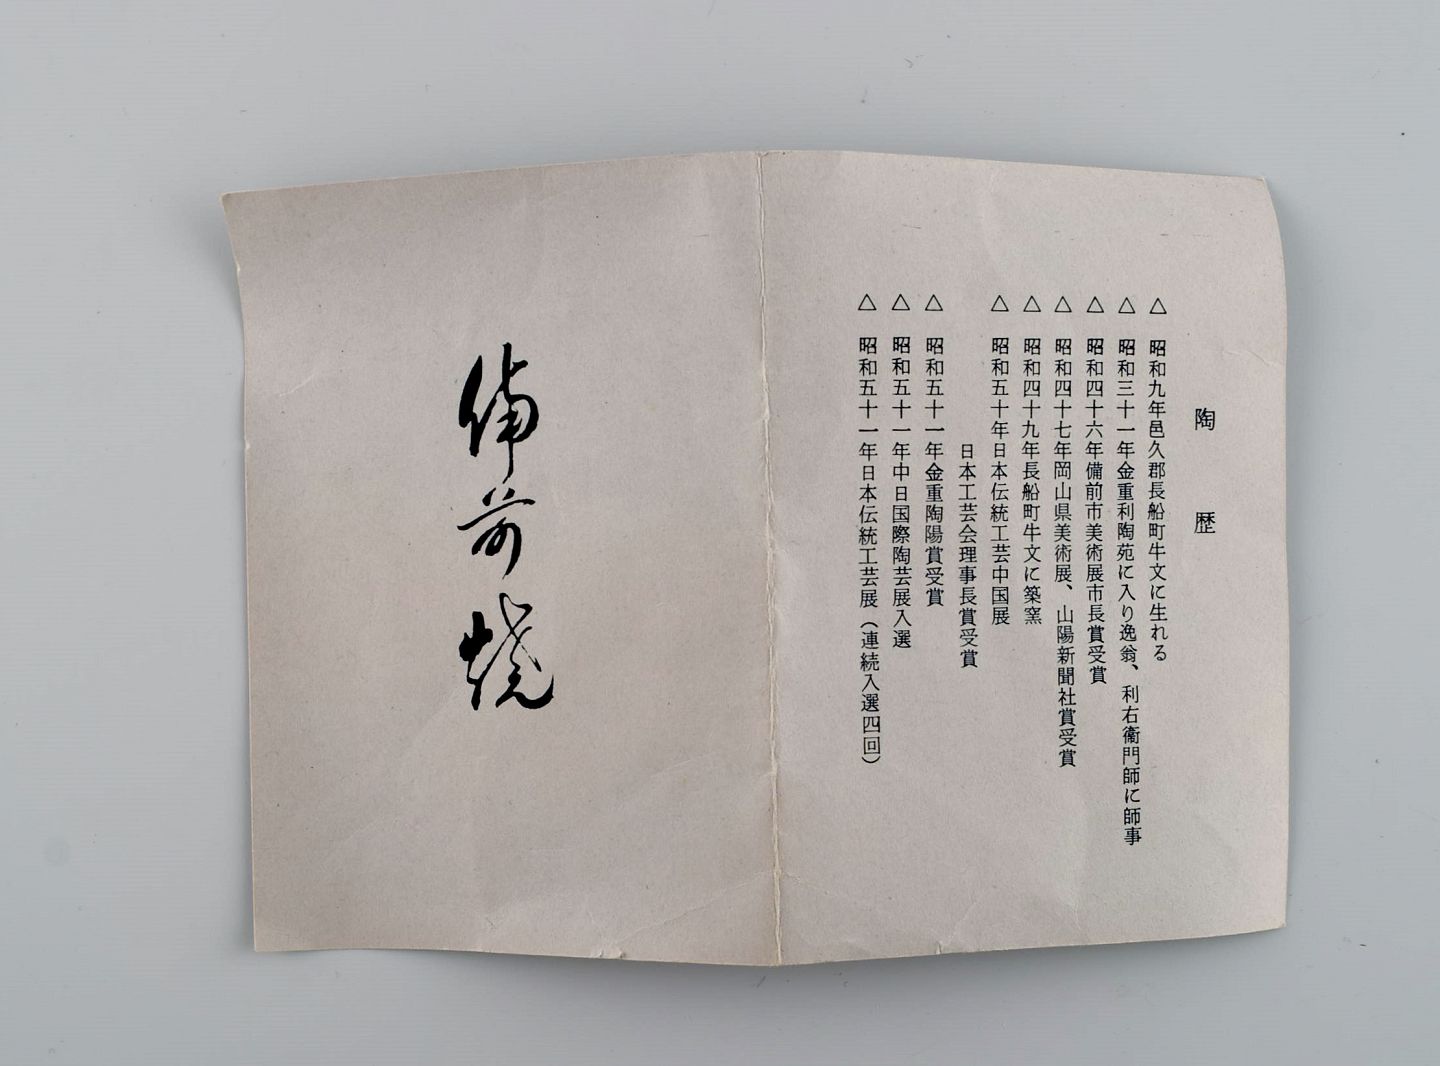 陶歴
△ 昭和九年邑久郡長船町牛文に生れる
△ 昭和三十一年金重利陶苑に入り逸翁、利右衞門師に師事
△ 昭和四十六年備前市美術展市長賞受賞
△ 昭和四十七年岡山県美術展、山陽新聞社賞受賞
△ 昭和四十九年長船町牛文に築窯
△ 昭和五十年日本伝統工芸中国展
日本工芸会理事長賞受賞
△ 昭和五十一年金重陶陽賞受賞
△ 昭和五十一年中日国際陶芸展入選
△ 昭和五十一年日本伝統工芸展（連続入選四回）
備前焼